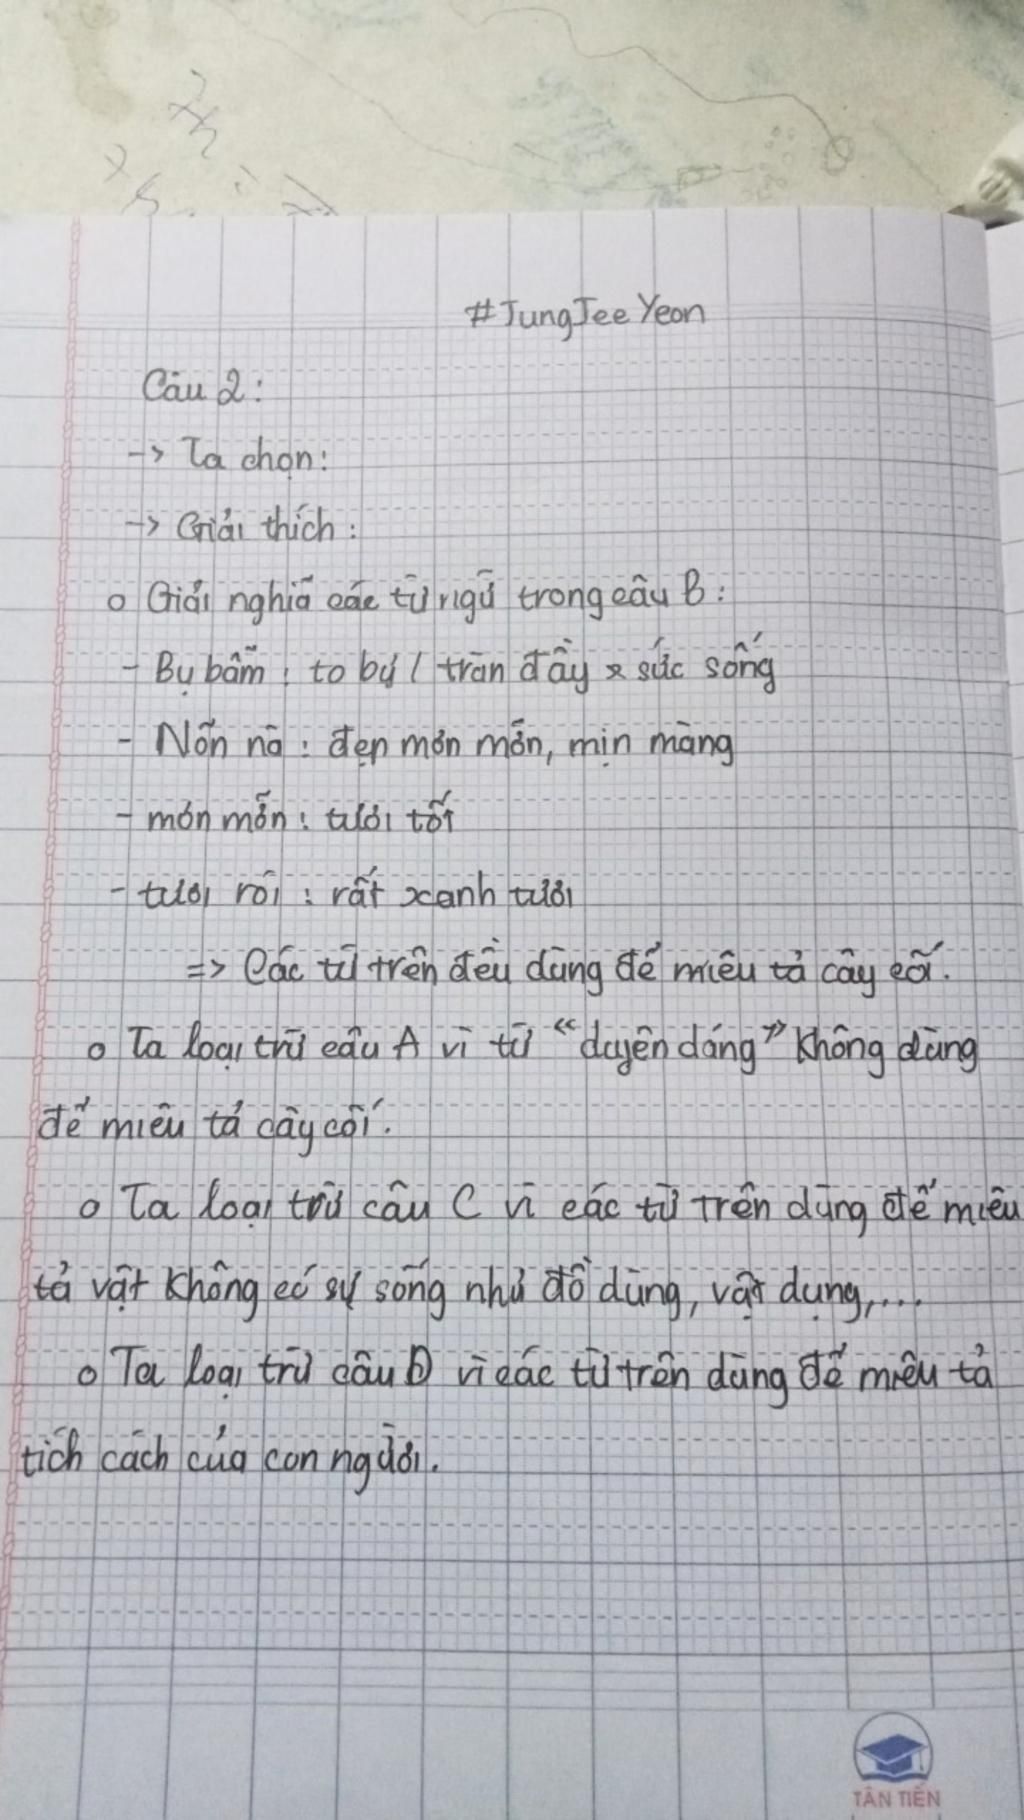 #JungJeeYeon
Câu 2:
-> Ta chọn:
-> Giải thích:
o Giải nghĩa các từ ngữ trong câu B:
- Bụ bẫm: to bự / tràn đầy sức sống
- Nõn nà: đẹp mơn mởn, mịn màng
- mơn mởn: tươi tốt
- tươi rói: rất xanh tươi
=> Các từ trên đều dùng để miêu tả cây cối.
o Ta loại trừ câu A vì từ "duyên dáng" không dùng
để miêu tả cây cối.
o Ta loại trừ câu C vì các từ trên dùng để miêu
tả vật không có sự sống như đồ dùng, vật dụng,...
o Ta loại trừ câu D vì các từ trên dùng để miêu tả
tích cách của con người.
TÂN TIẾN